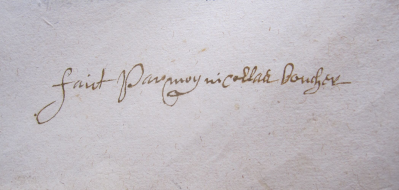 faict Par moy nicollas boucher